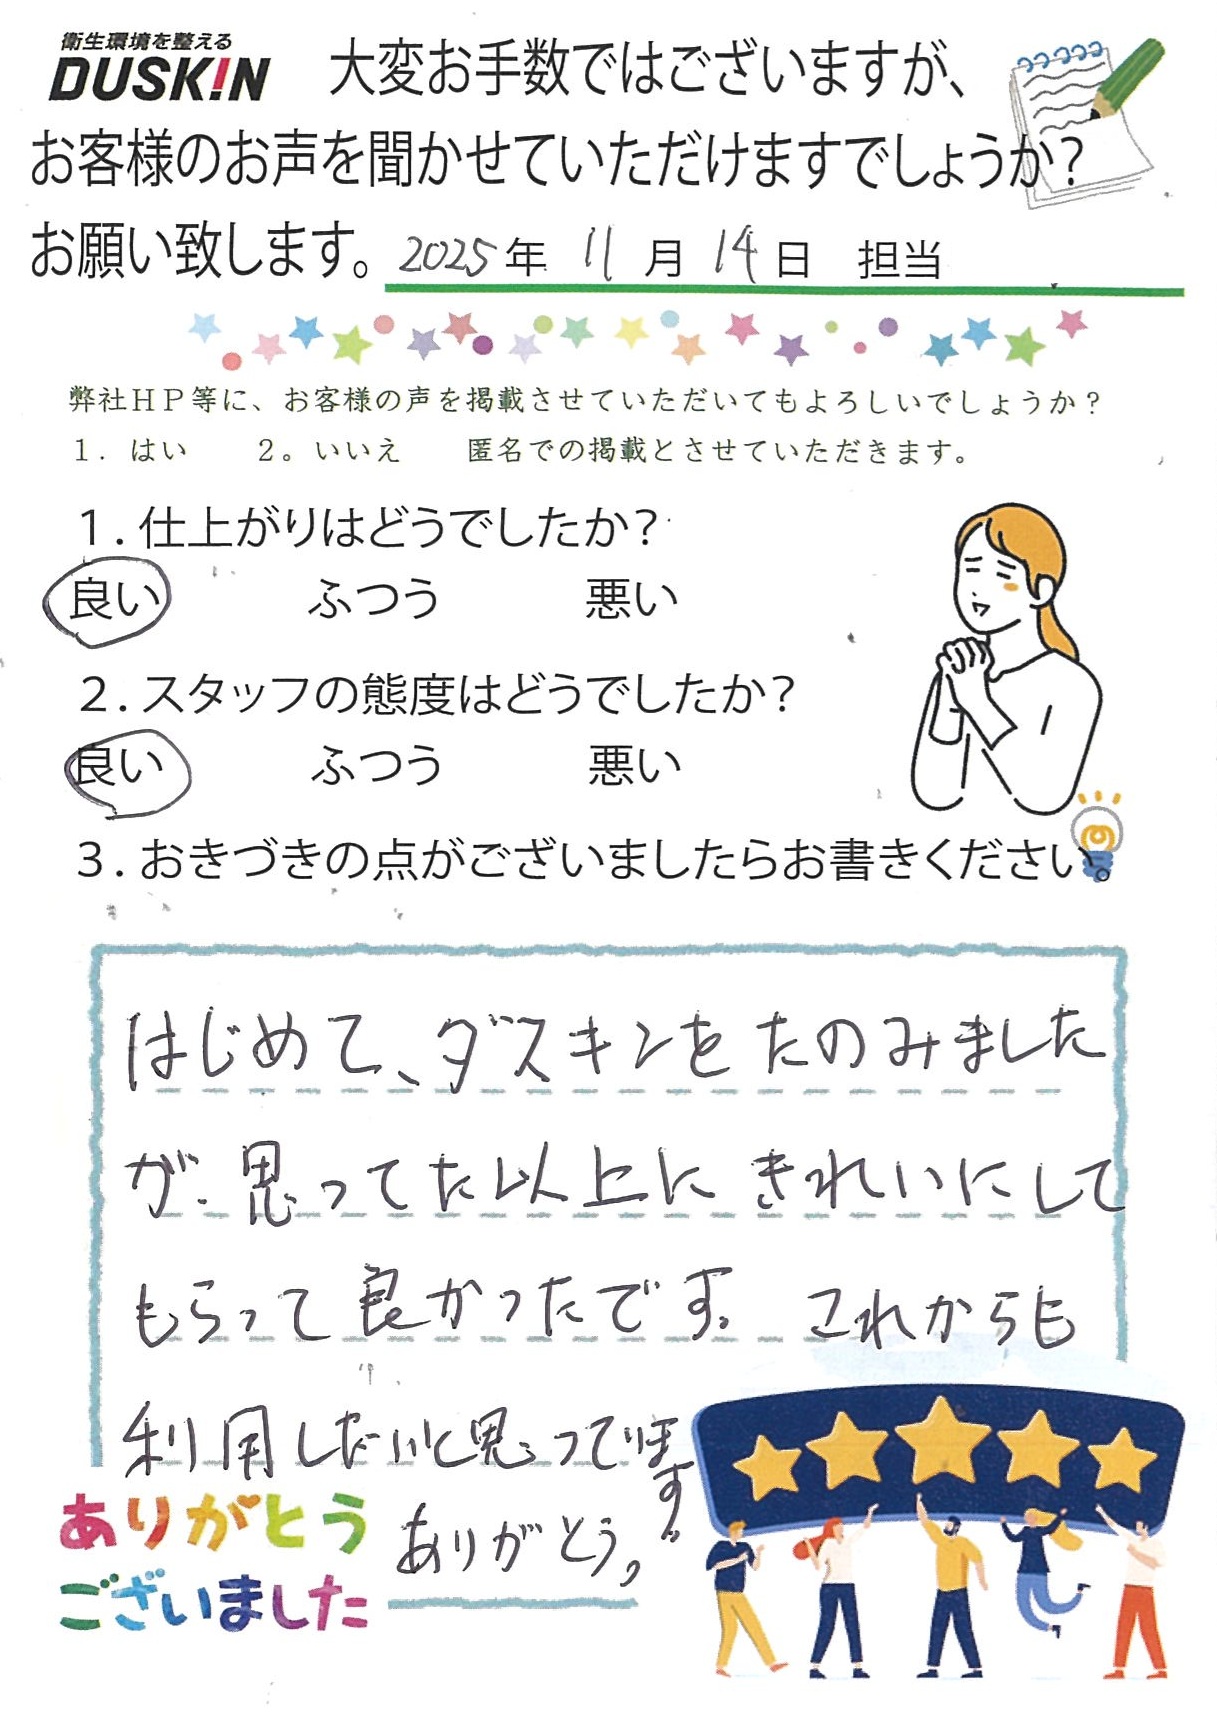 衛生環境を整える
DUSKIN 大変お手数ではございますが、
お客様のお声を聞かせていただけますでしょうか?
お願い致します。 2025年 11月 14日 担当
弊社HP等に、お客様の声を掲載させていただいてもよろしいでしょうか?
1. はい 2。いいえ 匿名での掲載とさせていただきます。
1.仕上がりはどうでしたか?
良い ふつう 悪い
2.スタッフの態度はどうでしたか?
良い ふつう 悪い
3.おきづきの点がございましたらお書きください。
はじめて、ダスキンをたのみました
が、思ってた以上にきれいにして
もらって良かったです。これからも
利用したいと思っています。
ありがとう。
ありがとう
ございました